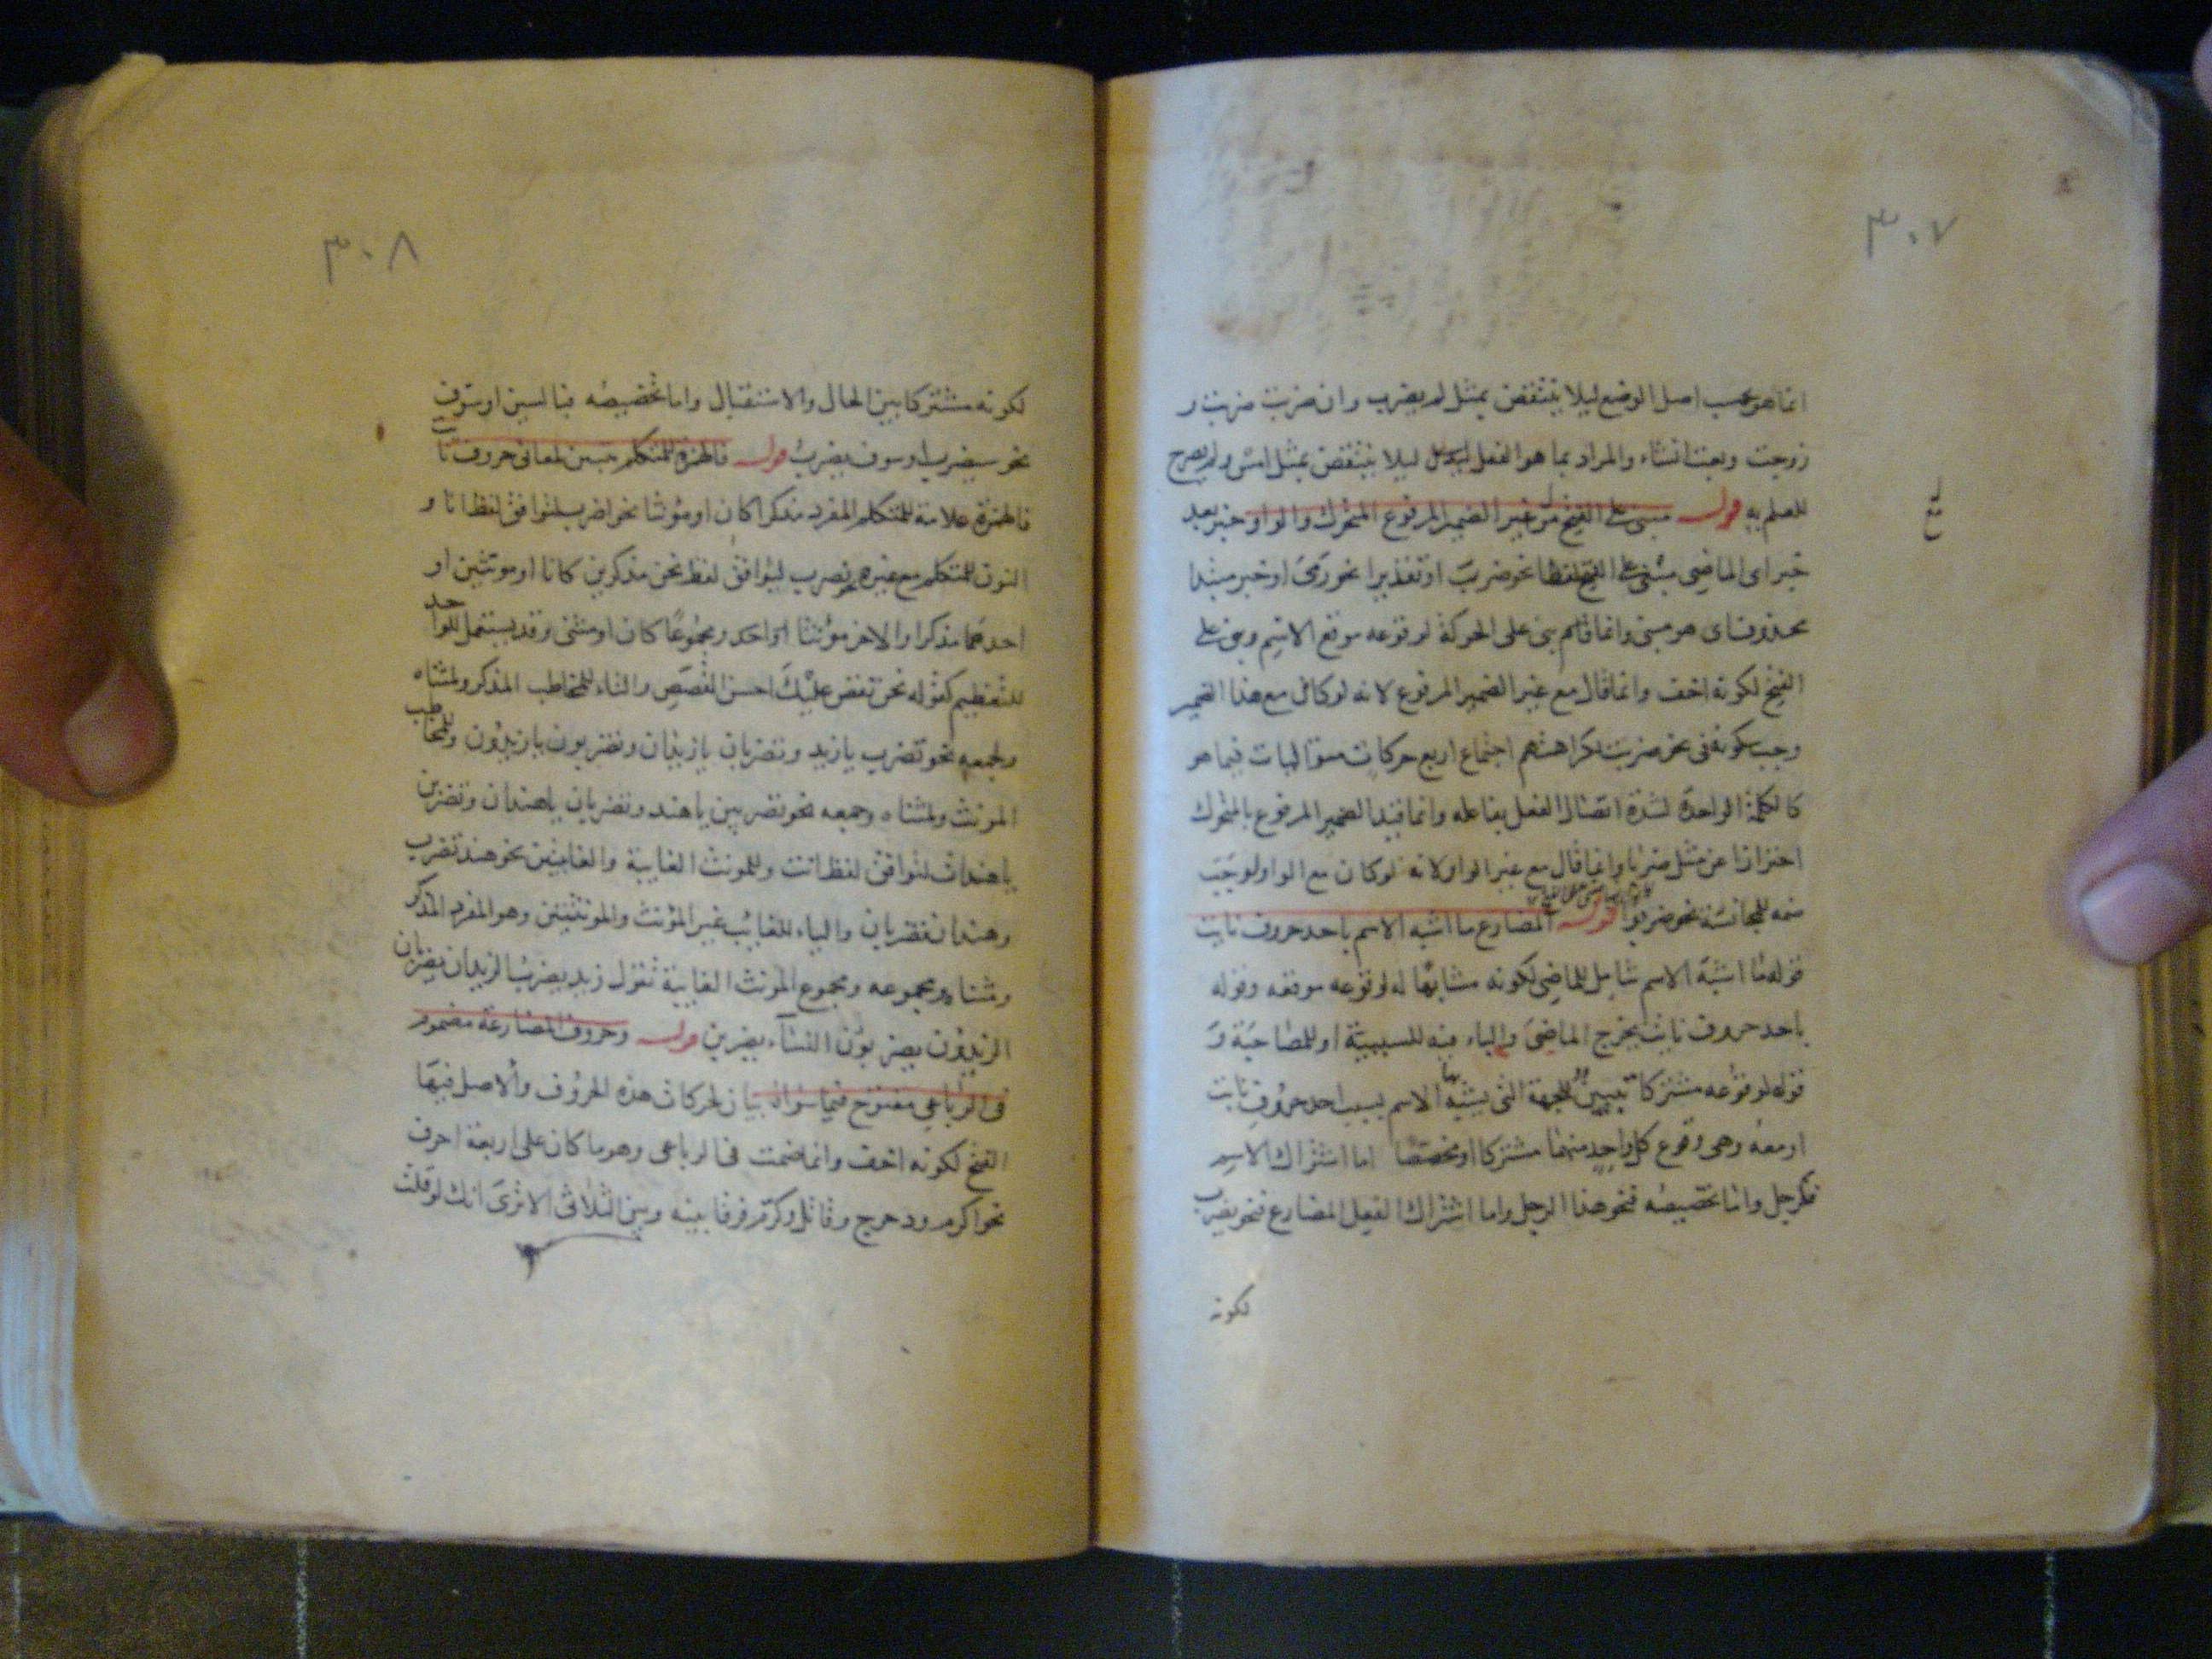 ٣٠٧
انما هو بحسب اصل الوضع ليلا ينتقض بمثل لم يضرب وان ضربت ضربت و
زوجت وبعت انشاء والمراد بما هو الفعل ليلا ينتقض بمثل امس ولم يصرح
للعلم به قوله مبنى على الفتح مع غير الضمير المرفوع المتحرك والواو خبر بعد
خبر اى الماضى مبنى على الفتح لفظا نحو ضرب او تقديرا نحو رمى او خبر مبتدا
محذوف اى هو مبنى وانما بنى على الحركة لوقوعه موقع الاسم وبنى على
الفتح لكونه اخف وانما قال مع غير الضمير المرفوع لانه لو كان مع هذا الضمير
وجب سكونه فى نحو ضربت لكراهتهم اجتماع اربع حركات متواليات فيما هو
كالكلمة الواحدة لشدة اتصال الفعل بفاعله وانما قيد الضمير المرفوع بالمتحرك
احترازا عن مثل ضربا وانما قال مع غير الواو لانه لو كان مع الواو لوجب
ضمه للمجانسة نحو ضربوا قوله المضارع ما اشبه الاسم باحد حروف نايت
قوله ما اشبه الاسم شامل للماضى لكونه مشابها له لوقوعه موقعه وقوله
باحد حروف نايت يخرج الماضى والباء فيه للسببية او للمصاحبة و
قوله لوقوعه مشتركا تبيين للجهة التى يشبه بها الاسم بسبب احد حروف نايت
او معه وهى وقوع كل واحد منهما مشتركا او مختصا اما اشتراك الاسم
فكرجل واما تخصيصه فنحو هذا الرجل واما اشتراك الفعل المضارع فنحو يضرب
لكونه
٣٠٨
لكونه مشتركا بين الحال والاستقبال واما تخصيصه فبالسين او سوف
نحو سيضرب او سوف يضرب قوله فالهمزة للمتكلم تبيين لمعانى حروف نايت
فالهمزة علامة للمتكلم المفرد مذكرا كان او مؤنثا نحو اضرب ليتوافق لفظ انا و
النون للمتكلم مع غيره نحو نضرب ليوافق لفظ نحن مذكرين كانا او مونثين او
احدهما مذكرا والاخر مؤنثا او احد ومجموعا كان او مثنى وقد يستعمل للواحد
للتعظيم كقوله نحن نقص عليك احسن القصص والتاء للمخاطب المذكر ولمثناه
ولجمعه نحو تضرب يا زيد وتضربان يا زيدان وتضربون يا زيدون وللمخاطب
المونث ولمثناه وجمعه نحو تضربين يا هند وتضربان يا هندان وتضربن
يا هندات لتوافق لفظ انت وللمونث الغايبة والغايبتين نحو هند تضرب
وهندان تضربان والياء للغائب غير المؤنث والمونثتين وهو المفرد المذكر
ومثناه ومجموعه ومجموع المونث الغايبة تقول زيد يضرب الزيدان يضربان
الزيدون يضربون النساء يضربن قوله وحروف المضارعة مضموم
فى الرباعى مفتوح فيما سواه بيان لحركات هذه الحروف والاصل فيها
الفتح لكونه اخف وانما ضمت فى الرباعى وهو ما كان على اربعة احرف
نحو اكرم ودحرج وقاتل وكرم فرقا بينه وبين الثلاثى الا ترى انك لو قلت